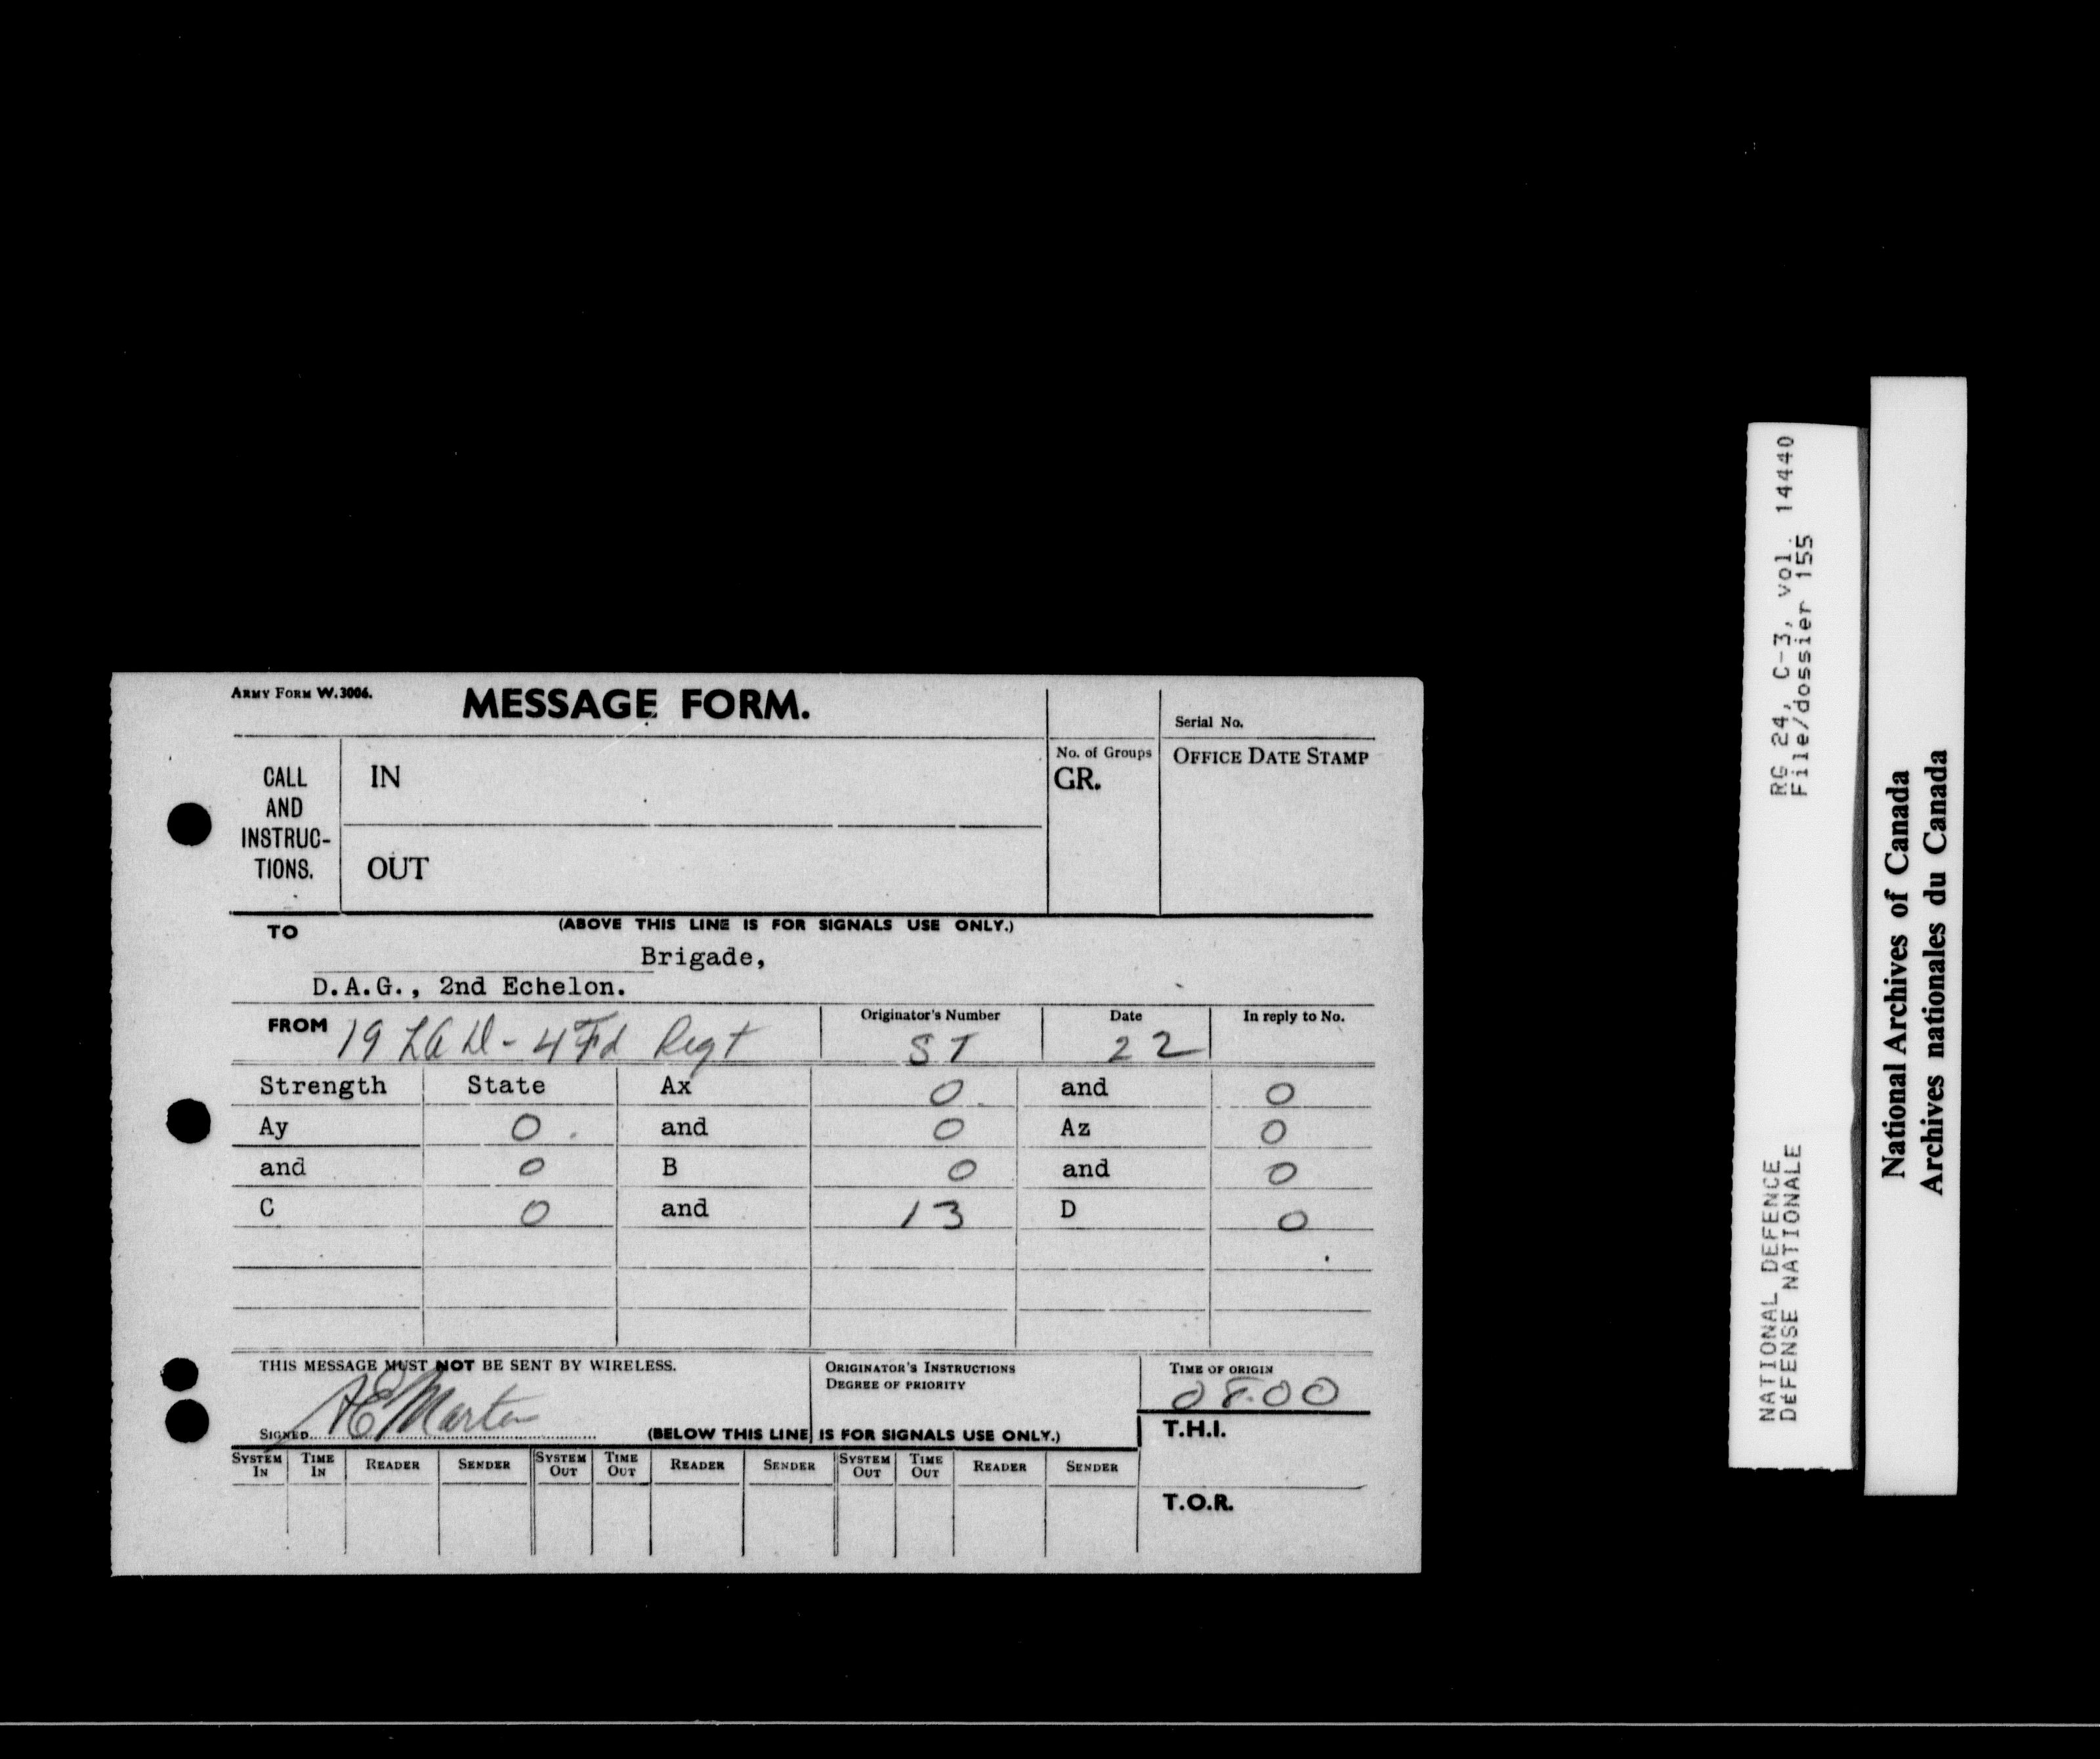 ARMY FORM W.3006.
MESSAGE FORM.
Serial No.
CALL AND INSTRUC-TIONS.
IN
OUT
No. of Groups
GR.
OFFICE DATE STAMP
(ABOVE THIS LINE IS FOR SIGNALS USE ONLY.)
TO
Brigade,
D.A.G., 2nd Echelon.
FROM 19 LAD - 4 Fd Regt
Originator's Number
ST
Date
22
In reply to No.
Strength State Ax 0 and 0
Ay 0 and 0 Az 0
and 0 B 0 and 0
C 0 and 13 D 0
THIS MESSAGE MUST NOT BE SENT BY WIRELESS.
ORIGINATOR'S INSTRUCTIONS
DEGREE OF PRIORITY
TIME OF ORIGIN
08.00
SIGNED AE Martin
(BELOW THIS LINE IS FOR SIGNALS USE ONLY.)
T.H.I.
SYSTEM IN TIME IN READER SENDER SYSTEM OUT TIME OUT READER SENDER SYSTEM OUT TIME OUT READER SENDER
T.O.R.
RG 24, C-3, vol. 14440
File/dossier 155
NATIONAL DEFENCE
DéFENSE NATIONALE
National Archives of Canada
Archives nationales du Canada